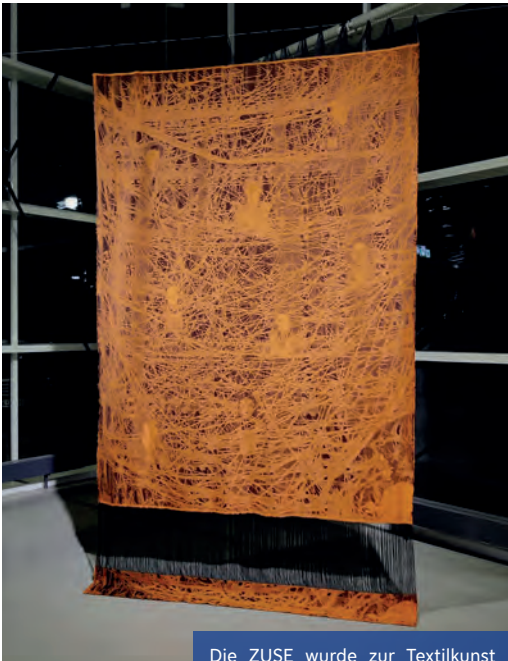 Die ZUSE wurde zur Textilkunst